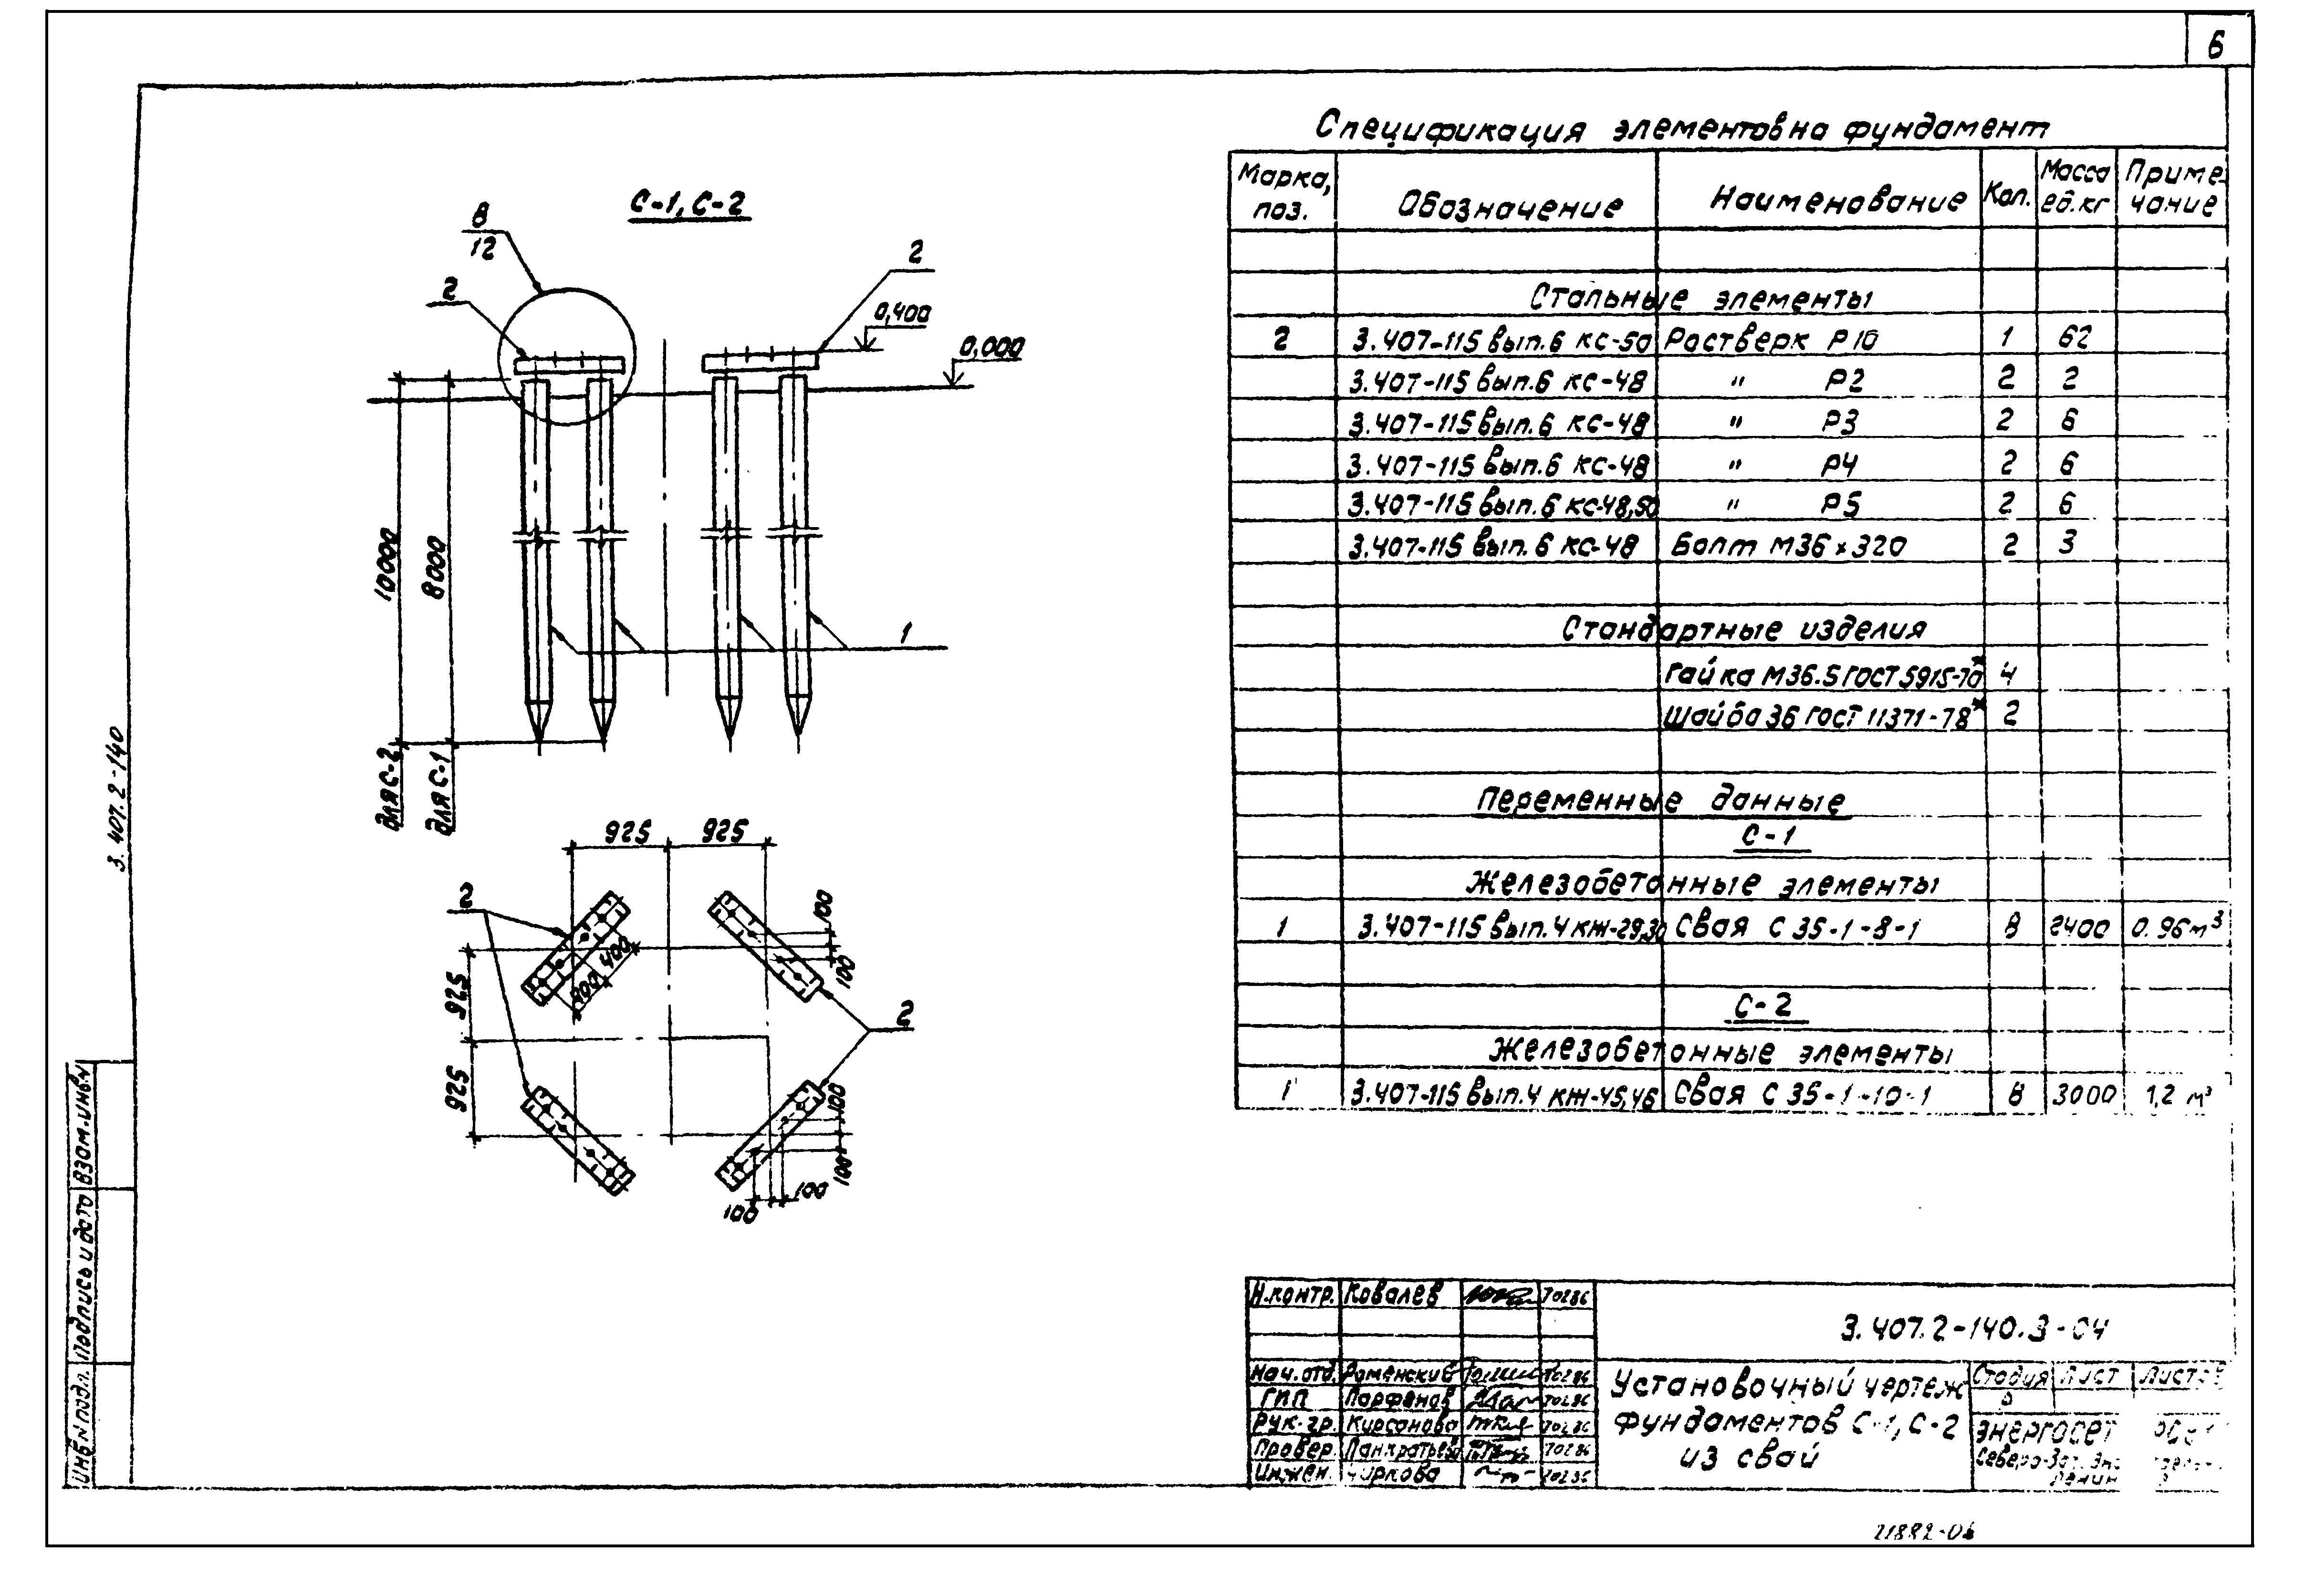 6
Спецификация элементов на фундамент
Марка, поз. Обозначение Наименование Кол. Масса ед. кг Приме- чание
Стальные элементы
2 3.407-115 вып.6 КС-50 Ростверк Р10 1 62
3.407-115 вып.6 КС-48 " Р2 2 2
3.407-115 вып.6 КС-48 " Р3 2 6
3.407-115 вып.6 КС-48 " Р4 2 6
3.407-115 вып.6 КС-48,50 " Р5 2 6
3.407-115 вып.6 КС-48 Болт М36×320 2 3
Стандартные изделия
Гайка М36.5 ГОСТ 5915-70* 4
Шайба 36 ГОСТ 11371-78* 2
Переменные данные
С-1
Железобетонные элементы
1 3.407-115 вып.4 КЖ-29,30 Свая С35-1-8-1 8 2400 0.96м³
С-2
Железобетонные элементы
1 3.407-115 вып.4 КЖ-45,46 Свая С35-1-10-1 8 3000 1,2 м³
С-1, С-2
8
12
2
2
0,400
0,000
10000
8000
1
для С-2
для С-1
925 925
2
400
400
100
100
925
925
2
100
100
100
100
3.407.2-140
Инв.№ подл. Подпись и дата Взам.инв.№
Н.контр. Ковалев 70286
3.407.2-140.3-04
Нач.отд. Роменский 70286
ГИП Парфенов 70286
Рук.гр. Кирсанова 70286
Провер. Панкратьева 70286
Инжен. Чиркова 70286
Установочный чертеж
фундаментов С-1, С-2
из свай
Стадия Лист Листов
Р
Энергосет
Северо-Зап.
Ленин